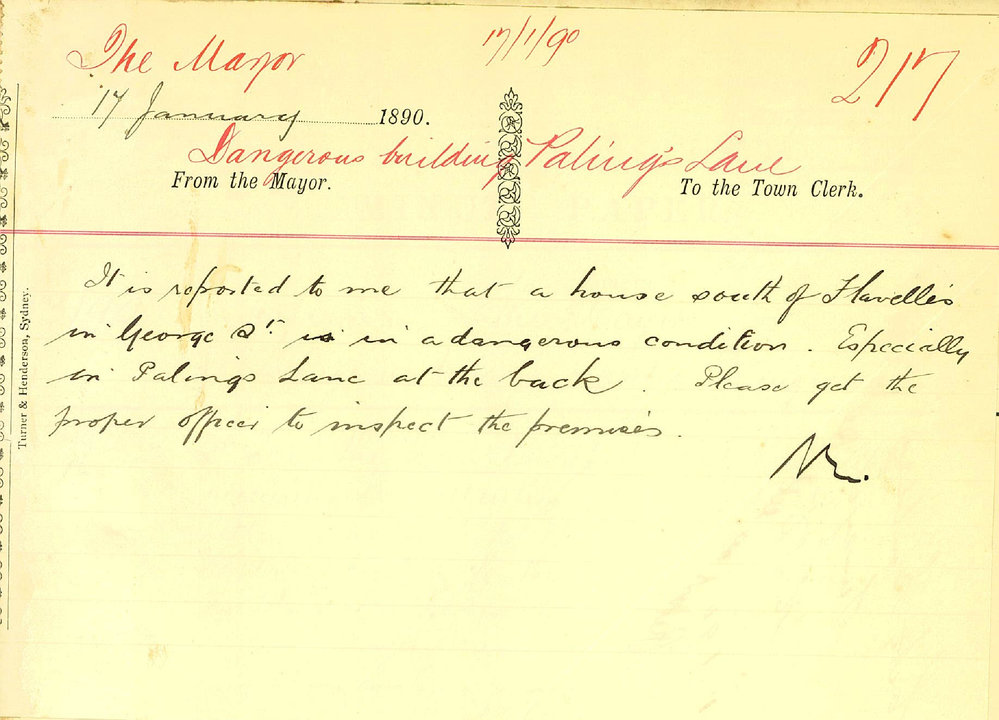 The Mayor
17/1/90
217
17 January 1890.
Dangerous building Paling's Lane
From the Mayor.
To the Town Clerk.
It is reported to me that a house south of Flavelle's
in George St is in a dangerous condition. Especially
in Palings Lane at the back. Please get the
proper officer to inspect the premises.
Turner & Henderson, Sydney.